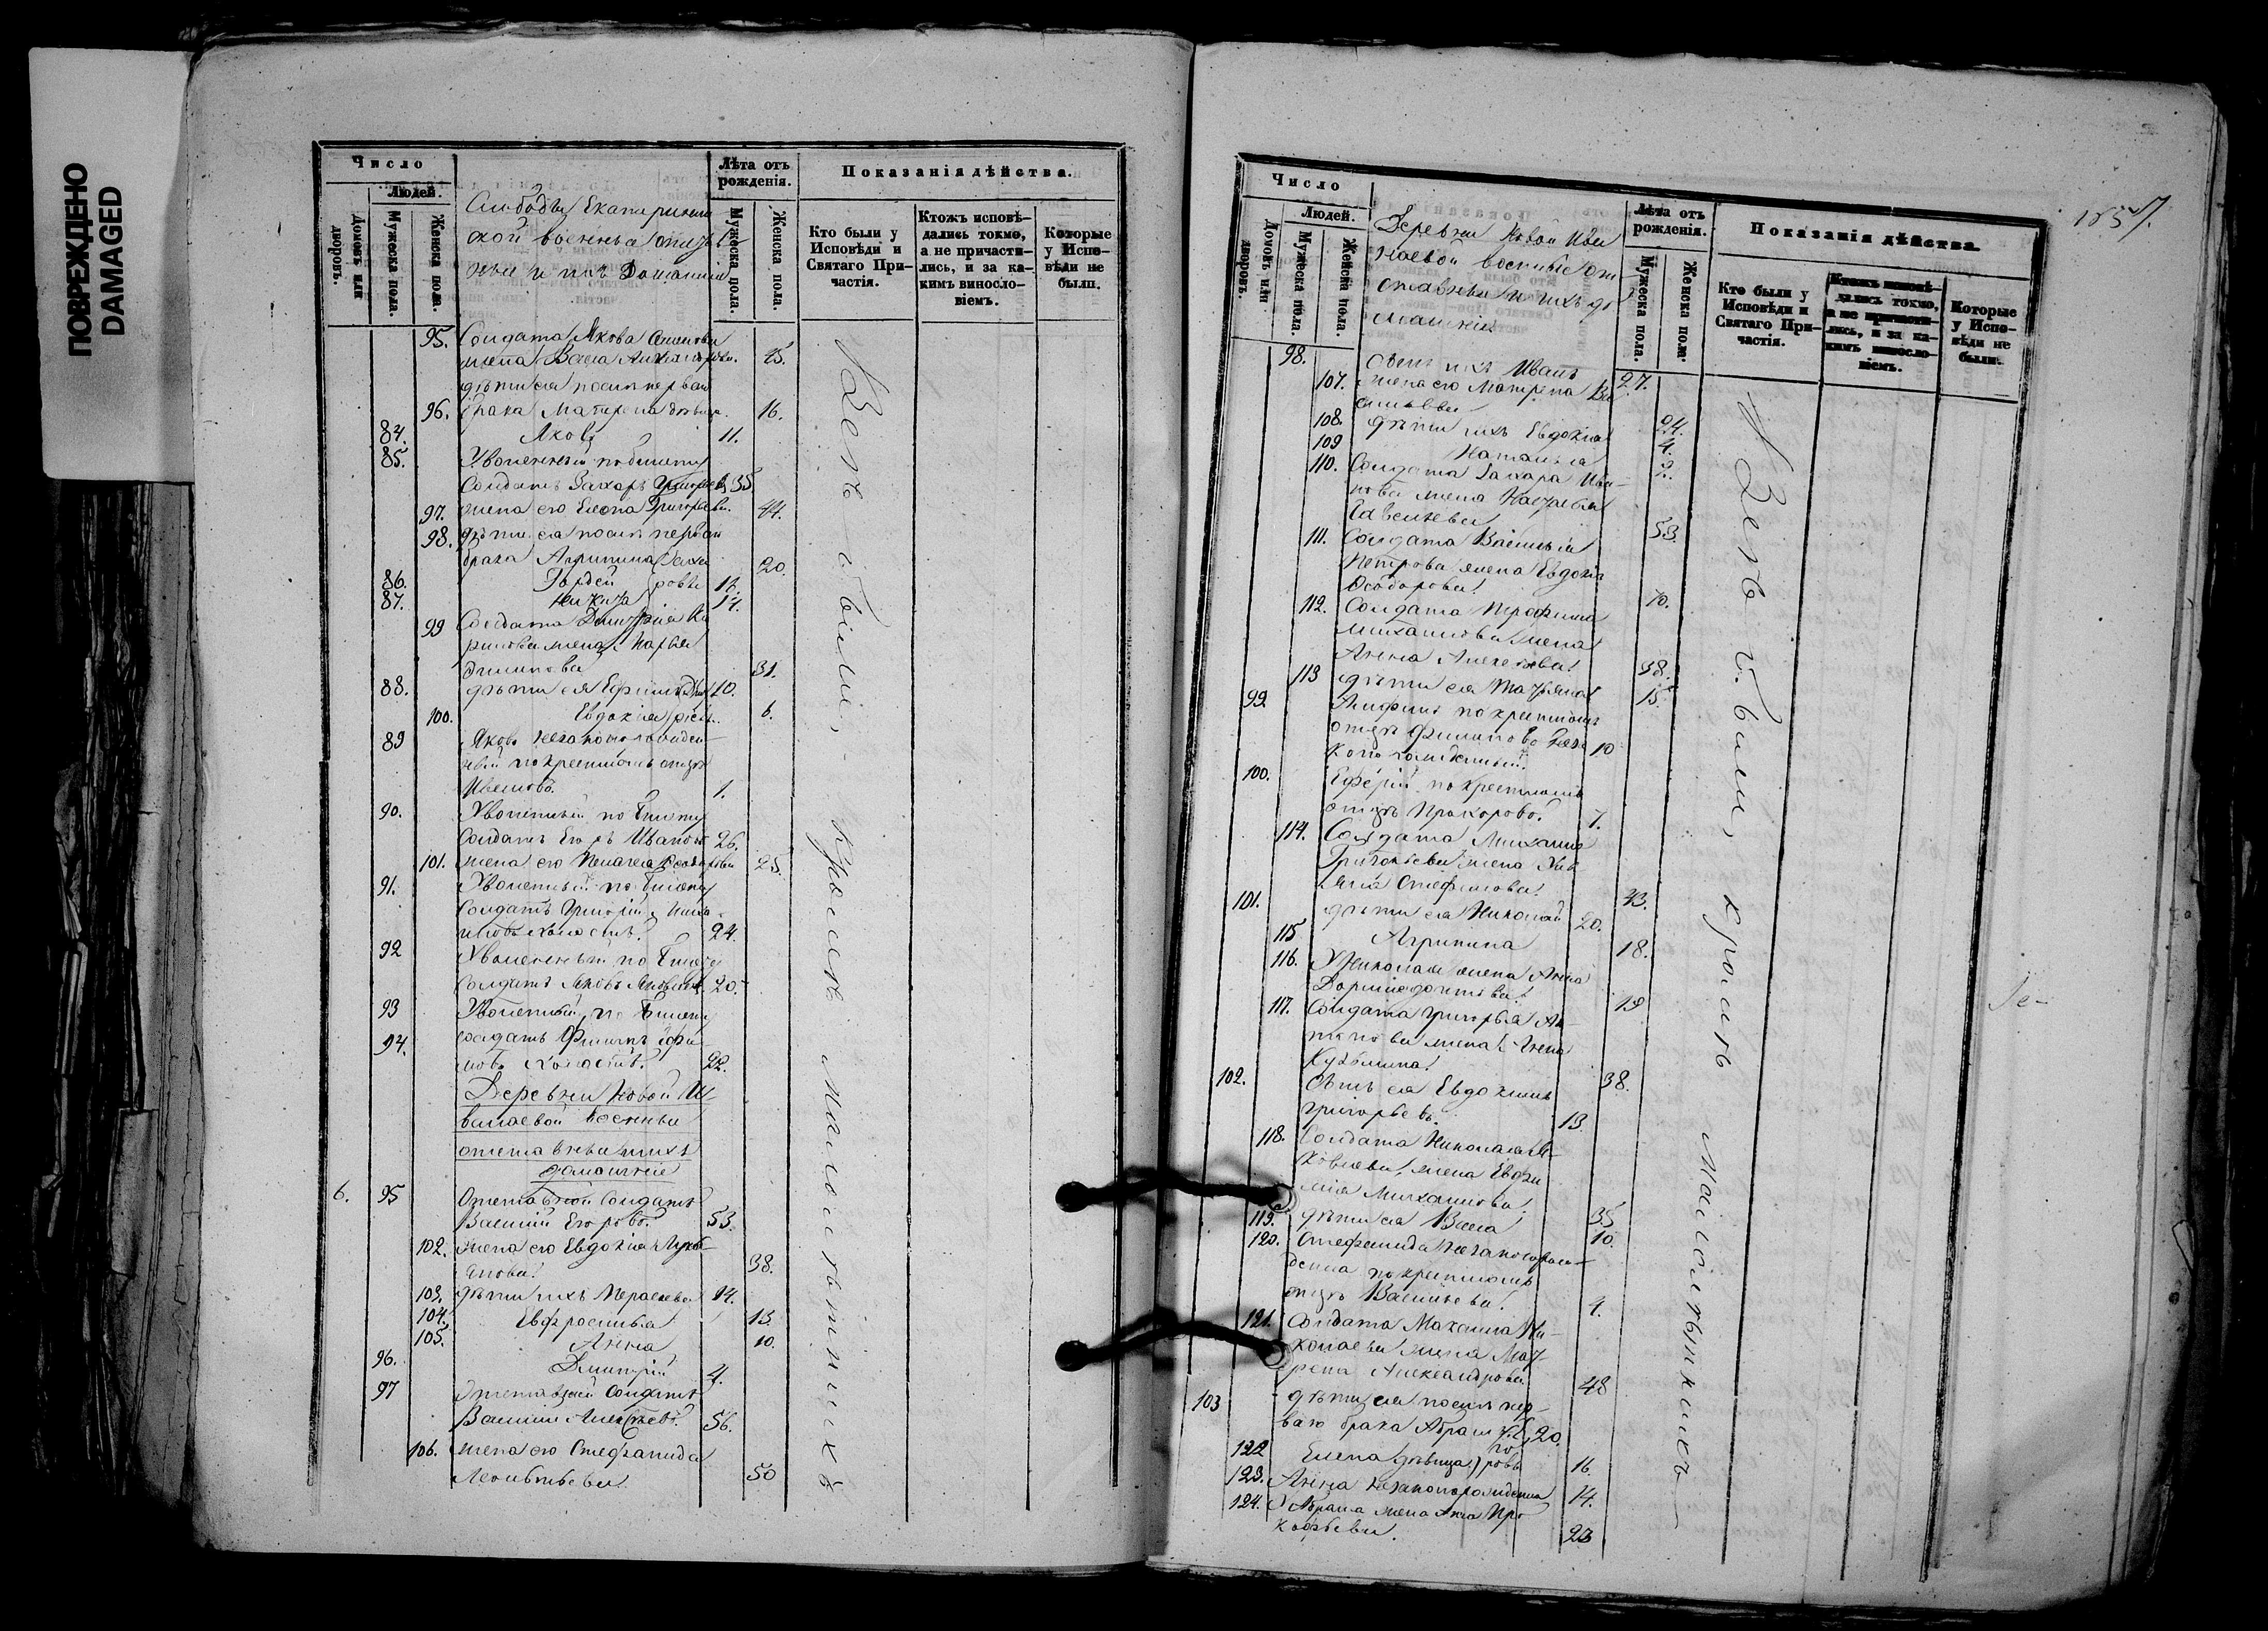 ПОВРЕЖДЕНО
DAMAGED
Число
Людей.
Домовъ или дворовъ.
Мужеска пола.
Женска пола.
Слободы Екатеринин
ской военныя отстав
ныя и ихъ домашнія
Лѣта отъ рожденія.
Мужеска пола.
Женска пола.
Показанія дѣйства.
Кто были у Исповѣди и Святаго Причастія.
Ктожъ исповѣдались токмо, а не причастились, и за какимъ винословіемъ.
Которые у Исповѣди не были.
95. Солдата Якова
жена Васса 45.
дѣти ея послѣ перваго
96. брака Матрена дѣвица. 16.
84. Яковъ 11.
85. Уволенный по билету
Солдатъ Захаръ Григорьевъ 35
97. жена его Елена Григорьева. 44.
98. дѣти ея послѣ перваго
брака Агрипина 20.
86. Гордей 17.
87. Никита 14.
99 Солдата Димитрія Ки
рилова жена Марѳа
Филипова 31.
88. дѣти ея Ефимъ 10.
100. Евдокія 6.
89 Яковъ незаконорожден
ный по крестномъ отцѣ
Ивановъ. 1.
90. Уволенный по билету
Солдатъ Егоръ Ивановъ 26.
101. жена его Пелагея Ѳеодорова 25.
91. Уволенный по билету
Солдатъ Григорій
холостъ. 24.
92 Уволенный по билету
Солдатъ Яковъ Яковлевъ. 20.
93 Уволенный по билету
94. солдатъ Филипъ Ефи
мовъ холостъ. 22.
Деревни Новой И
ванаевой военныя
отставныя и ихъ
домашніе
6. 95 Отставной Солдатъ
Василій Егоровъ. 53.
102. жена его Евдокія Лукь
янова. 38.
103. дѣти ихъ Параскева 14.
104. Евфросинья 13
105. Анна 10.
96. Дмитрій 4.
97 Отставной Солдатъ
Василій Алексѣевъ. 56.
106. жена его Степанида
Леонтьева. 50
Всѣ были, кромѣ малолѣтнихъ
Число
Людей.
Домовъ или дворовъ.
Мужеска пола.
Женска пола.
Деревни Новой Ива
наевой военные от
ставныя и ихъ до
машнія
Лѣта отъ рожденія.
Мужеска пола.
Женска пола.
Показанія дѣйства.
Кто были у Исповѣди и Святаго Причастія.
Ктожъ исповѣдались токмо, а не причастились, и за какимъ винословіемъ.
Которые у Исповѣди не были.
98. Сынъ ихъ Иванъ 27.
107. жена его Матрена Ва
сильева 24.
108. дѣти ихъ Евдокія 4.
109 Наталья 2.
110. Солдата Захара Ива
нова жена Настасья
Савельева 53.
111. Солдата Василья
Петрова жена Евдокія
Ѳеодорова. 70.
112. Солдата Трофима
Михайлова жена
Анна Алексѣева. 38.
113 дѣти ея Татьяна 15.
99. по крестномъ
отцѣ Филипово неза
конорожденный. 10
100. по крестномъ
отцѣ Прохорово. 7.
114. Солдата Михаила
Григорьева жена Уль
яна Стефанова. 43.
101. дѣти ея Николай 20.
115 Агрипина 18.
116. У Николая жена Анна
Дормидонтова. 19
117. Солдата Григорья Ан
типова жена Анна
Кузьмина. 38.
102. Сынъ ея Евдокимъ
Григорьевъ. 13.
118. Солдата Николая Я
ковлева жена Евфи
мія Михайлова. 35
119. дѣти ея Васса 10.
120. Стефанида незаконорож
денна по крестномъ
отцѣ Васильева. 4.
121. Солдата Максима Ни
колаева жена Мат
рена Александрова 48
103 дѣти ея послѣ пер
ваго брака Абрамъ 20.
122 Елена дѣвица 16.
123. Анна незаконорожденна 14.
124. У Абрама жена Анна Про
кофьева. 23
Всѣ были, кромѣ малолѣтнихъ